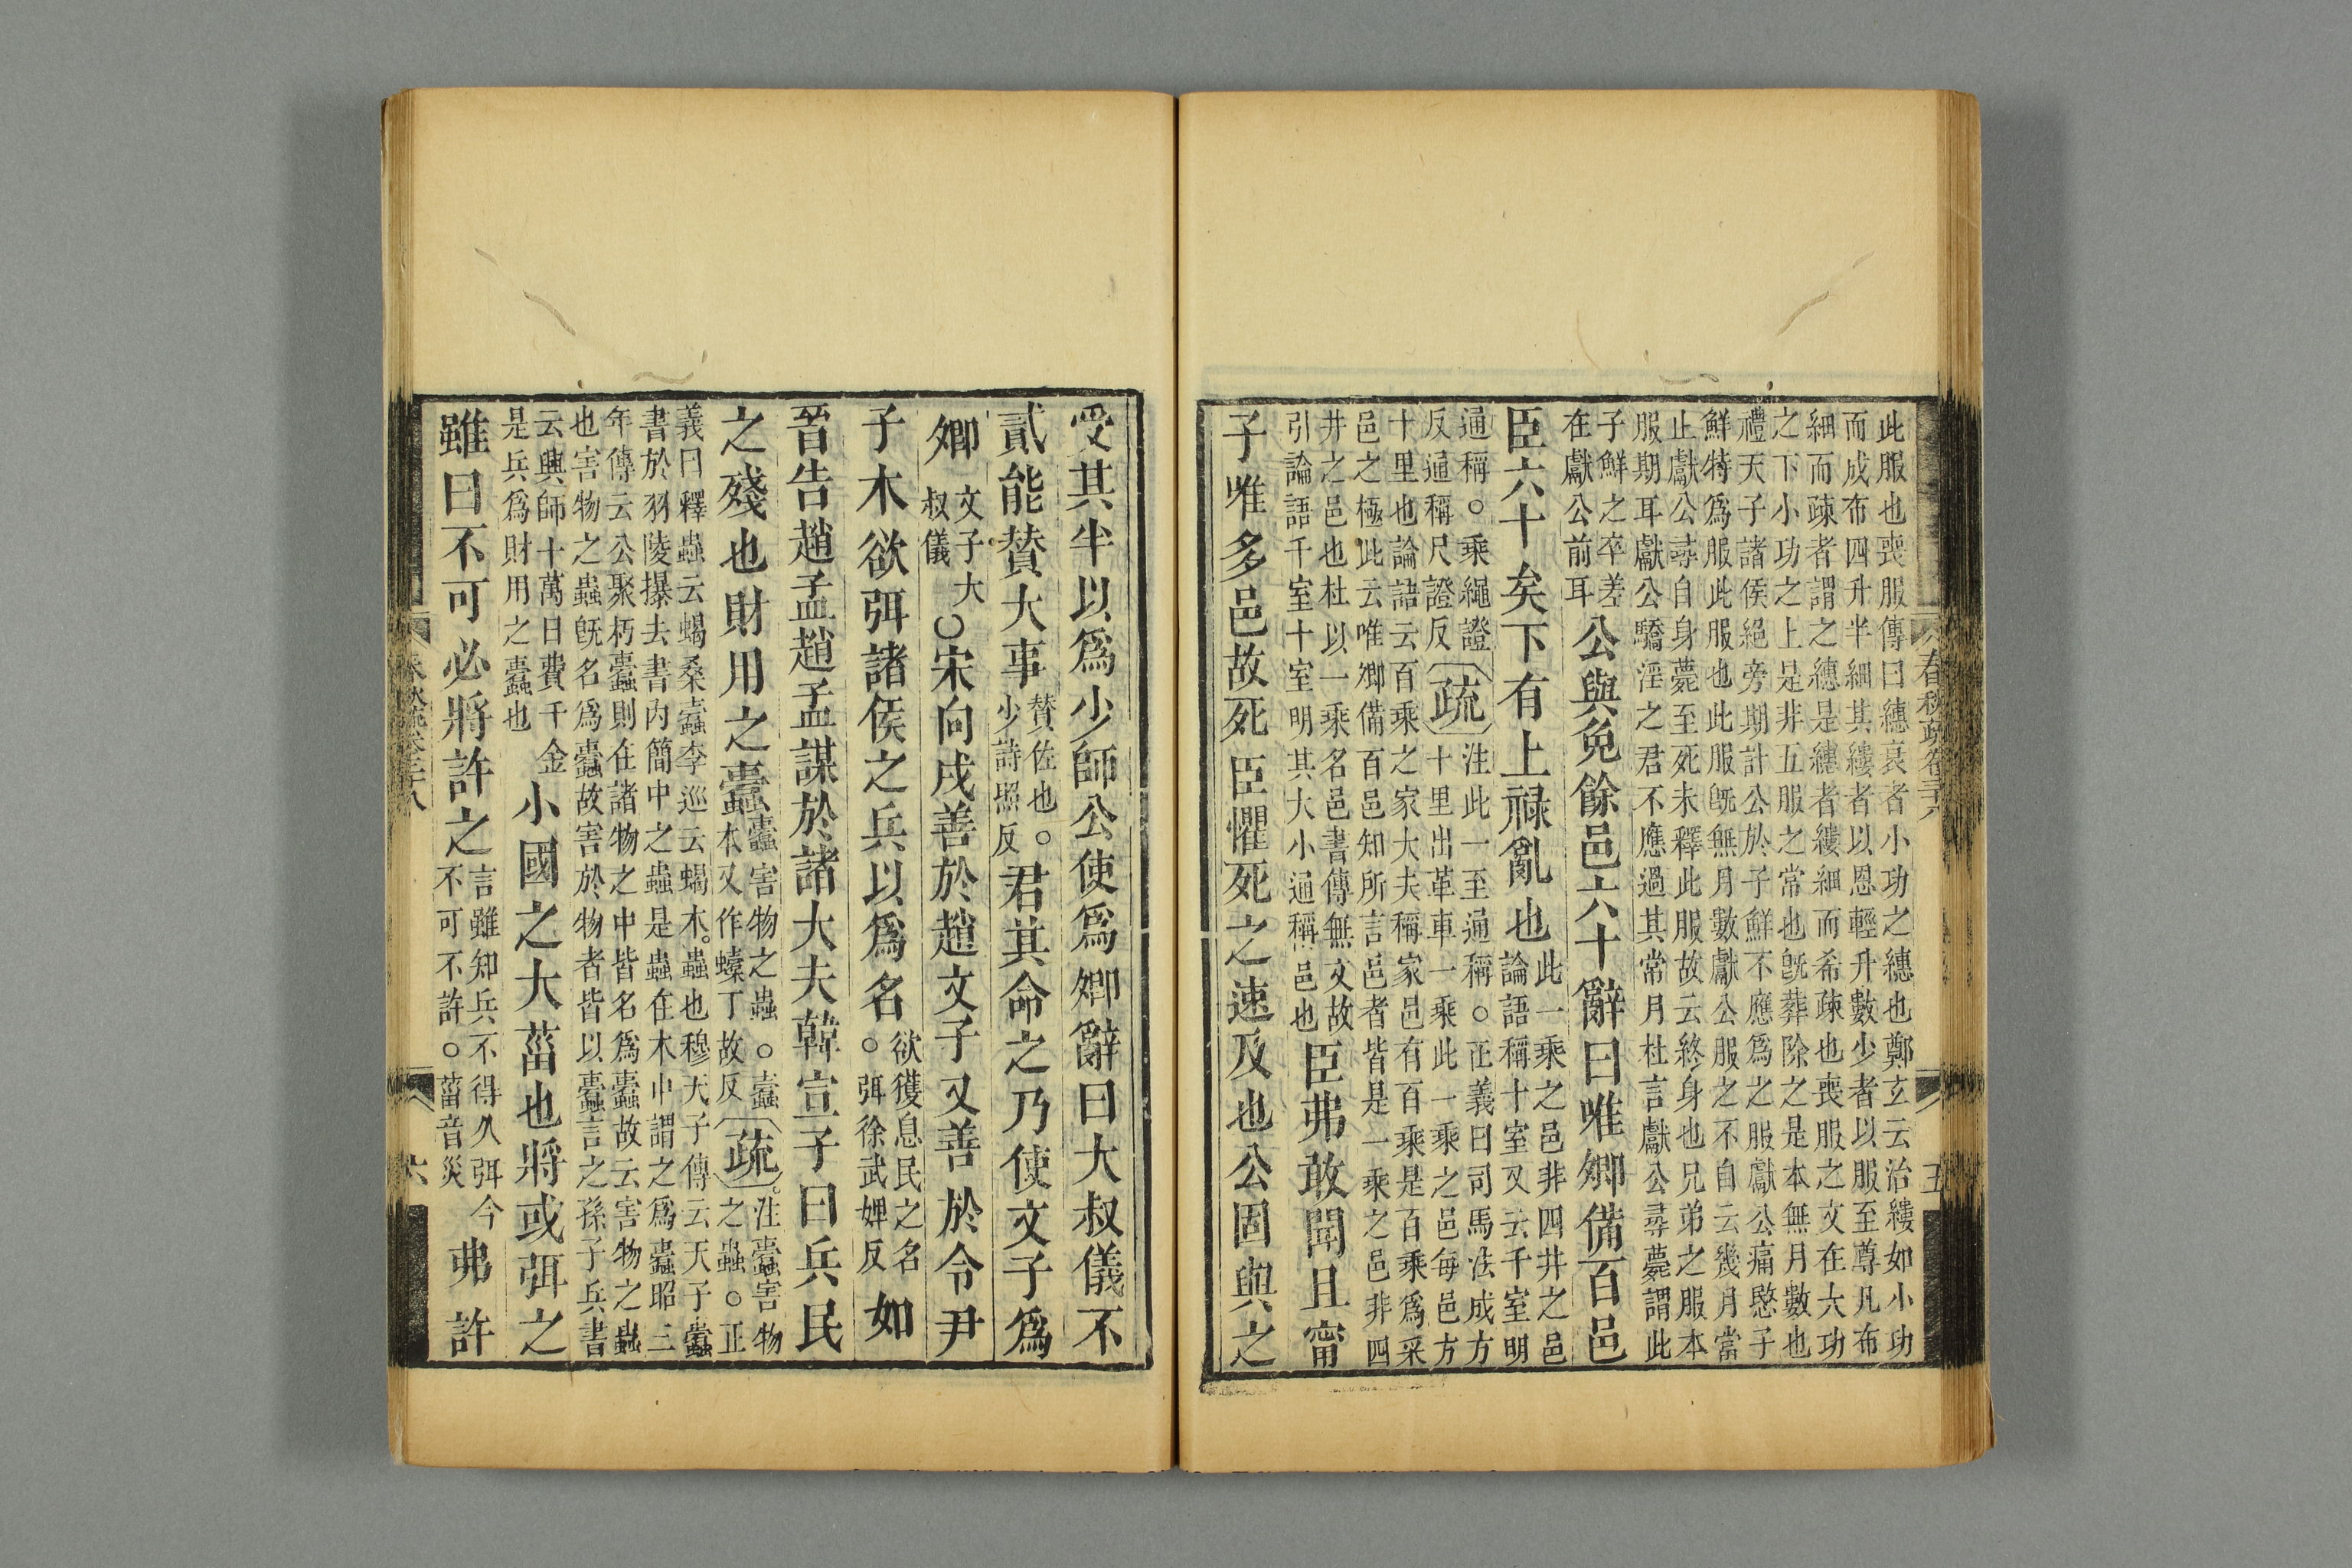 此服也喪服傳曰繐衰者小功之繐也鄭玄云治縷如小功
而成布四升半細其縷者以恩輕升數少者以服至尊凡布
細而疎者謂之繐是繐者縷細而希疎也喪服之文在大功
之下小功之上是非五服之常也旣葬除之是本無月數也
禮天子諸侯絕旁期計公於子鮮不應爲之服獻公痛愍子
鮮特爲服此服也此服旣無月數獻公服之不自云幾月當
止獻公尋自身薨至死未釋此服故云終身也兄弟之服本
服期耳獻公驕淫之君不應過其常月杜言獻公尋薨謂此
子鮮之卒差
在獻公前耳
公與免餘邑六十辭曰唯卿備百邑
臣六十矣下有上祿亂也
此一乘之邑非四井之邑
論語稱十室又云千室明
通稱○乘繩證
反通稱尺證反
疏
注此一至通稱○正義曰司馬法成方
十里出革車一乘此一乘之邑每邑方
十里也論語云百乘之家大夫稱家邑有百乘是百乘爲采
邑之極此云唯卿備百邑知所言邑者皆是一乘之邑非四
井之邑也杜以一乘名邑書傳無文故
引論語千室十室明其大小通稱邑也
臣弗敢聞且甯
子唯多邑故死臣懼死之速及也公固與之
受其半以爲少師公使爲卿辭曰大叔儀不
貳能賛大事
賛佐也○
少詩照反
君其命之乃使文子爲
卿
文子大
叔儀
○宋向戌善於趙文子又善於令尹
子木欲弭諸侯之兵以爲名
欲獲息民之名
○弭徐武婢反
如
晉告趙孟趙孟謀於諸大夫韓宣子曰兵民
之殘也財用之蠹
蠹害物之蟲○蠹
本又作螙丁故反
疏
注蠹害物
之蟲○正
義曰釋蟲云蝎桑蠹李巡云蝎木蟲也穆天子傳云天子蠹
書於羽陵㬥去書内簡中之蟲是蟲在木中謂之爲蠹昭三
年傳云公聚朽蠹則在諸物之中皆名爲蠹故云害物之蟲
也害物之蟲旣名爲蠹故害於物者皆以蠹言之孫子兵書
云興師十萬日費千金
是兵爲財用之蠹也
小國之大菑也將或弭之
雖曰不可必將許之
言雖知兵不得久弭今
不可不許○菑音災
弗許